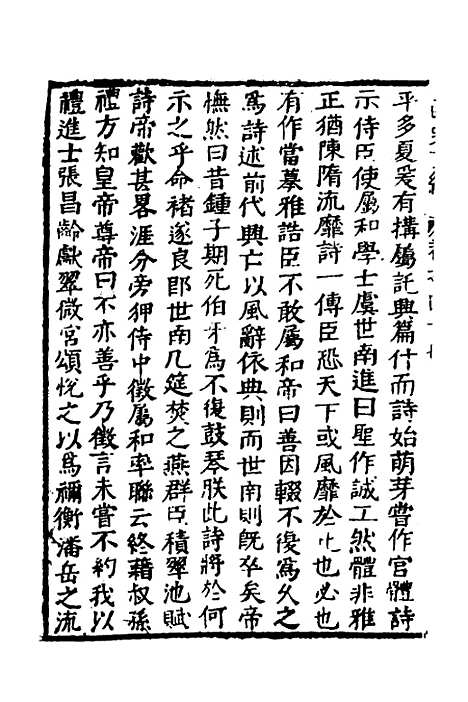 平多夏爰有搆屬託興篇什而詩始萌芽嘗作宫體詩
示侍臣使屬和學士虞世南進曰聖作誠工然體非雅
正猶陳隋流靡詩一傳臣恐天下或風靡於也必也
有作當摹雅誥臣不敢屬和帝曰善因輟不復爲久之
爲詩述前代興亡以風辭依典則而世南則旣卒矣帝
憮然曰昔鍾子期死伯牙爲不復鼓琴朕此詩將於何
示之乎命褚遂良即世南几筵焚之燕群臣積翠池賦
詩帝歡甚畧涯分旁狎侍中徵屬和率聯云終藉叔孫
禮方知皇帝尊帝曰不亦善乎乃徵言未嘗不約我以
禮進士張昌齡獻翠微宫頌悅之以爲禰衡潘岳之流